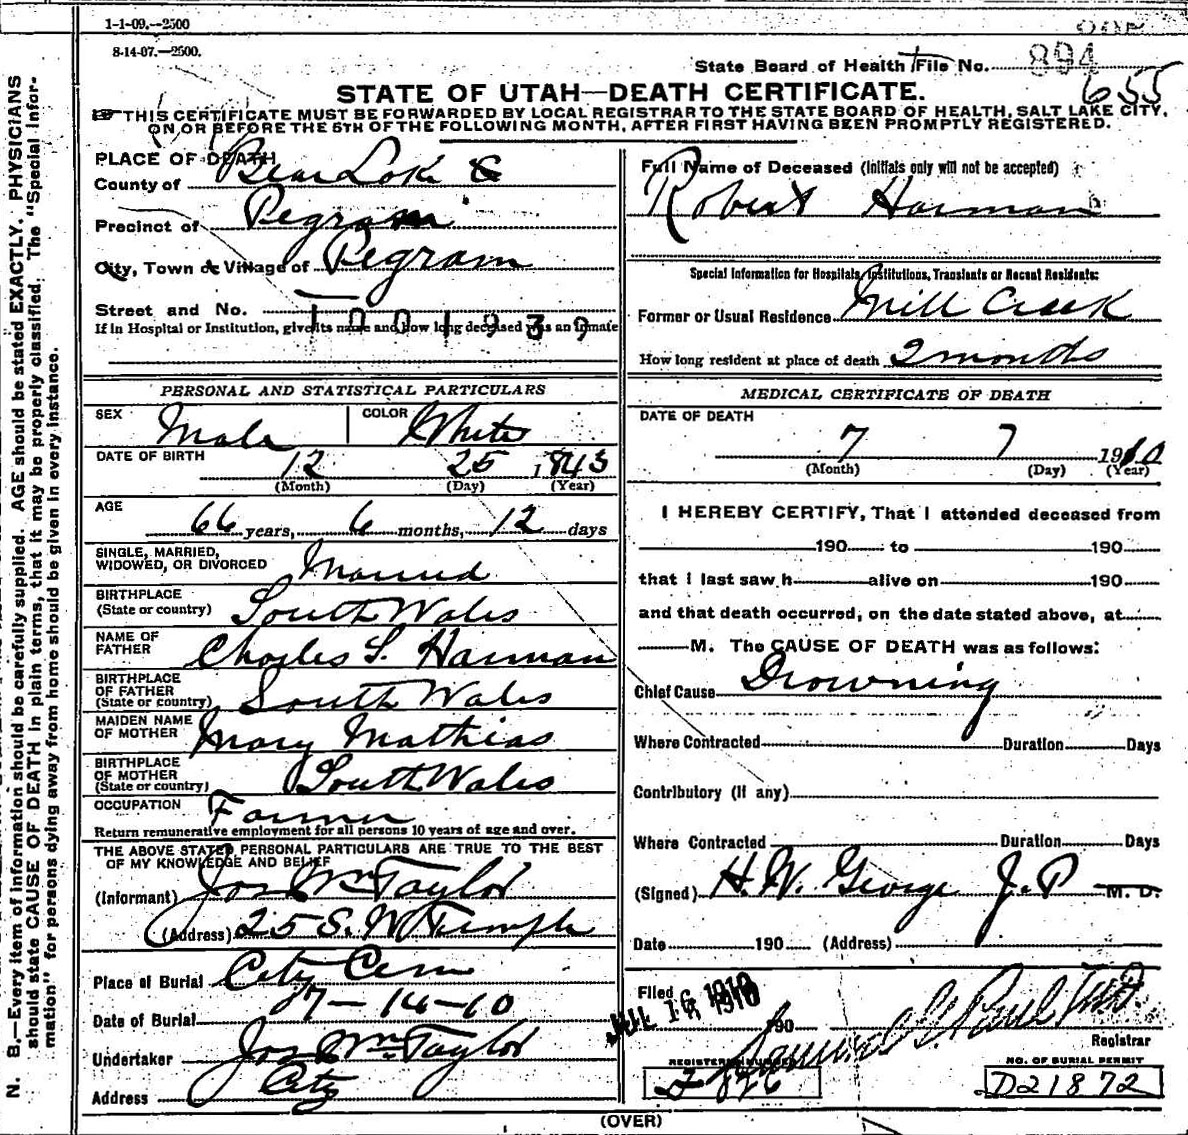 1-1-09.--2500
8-14-07.—2500.
State Board of Health File No. 894
655
STATE OF UTAH—DEATH CERTIFICATE.
THIS CERTIFICATE MUST BE FORWARDED BY LOCAL REGISTRAR TO THE STATE BOARD OF HEALTH, SALT LAKE CITY,
ON OR BEFORE THE 5TH OF THE FOLLOWING MONTH, AFTER FIRST HAVING BEEN PROMPTLY REGISTERED.
N. B.—Every item of information should be carefully supplied. AGE should be stated EXACTLY. PHYSICIANS
should state CAUSE OF DEATH in plain terms, that it may be properly classified. The "Special Infor-
mation" for persons dying away from home should be given in every instance.
PLACE OF DEATH
County of Bear Lake
Precinct of Pegram
City, Town or Village of Pegram
Street and No.
If in Hospital or Institution, give its name and how long deceased was an inmate
1001939
PERSONAL AND STATISTICAL PARTICULARS
SEX Male COLOR White
DATE OF BIRTH 12 25 1843
(Month) (Day) (Year)
AGE
66 years, 6 months, 12 days
SINGLE, MARRIED,
WIDOWED, OR DIVORCED Married
BIRTHPLACE
(State or country) South Wales
NAME OF
FATHER Charles S. Harman
BIRTHPLACE
OF FATHER
(State or country) South Wales
MAIDEN NAME
OF MOTHER Mary Mathias
BIRTHPLACE
OF MOTHER
(State or country) South Wales
OCCUPATION Farmer
Return remunerative employment for all persons 10 years of age and over.
THE ABOVE STATED PERSONAL PARTICULARS ARE TRUE TO THE BEST
OF MY KNOWLEDGE AND BELIEF
(Informant) Jos Wm Taylor
(Address) 25 S. W Temple
Place of Burial City Cem
Date of Burial 7-14-10
Undertaker Jos Wm Taylor
Address City
Full Name of Deceased (Initials only will not be accepted)
Robert Harman
Special Information for Hospitals, Institutions, Transients or Recent Residents:
Former or Usual Residence Mill Creek
How long resident at place of death 2 months
MEDICAL CERTIFICATE OF DEATH
DATE OF DEATH
7 7 1910
(Month) (Day) (Year)
I HEREBY CERTIFY, That I attended deceased from
190 to 190
that I last saw h alive on 190
and that death occurred, on the date stated above, at
M. The CAUSE OF DEATH was as follows:
Chief Cause Drowning
Where Contracted Duration Days
Contributory (if any)
Where Contracted Duration Days
(Signed) H. W. George J.P M. D.
Date 190 (Address)
Filed JUL 16 1910 190
Samuel G. Paul M.D.
Registrar
REGISTERED NUMBER
F 876
NO. OF BURIAL PERMIT
D21872
(OVER)